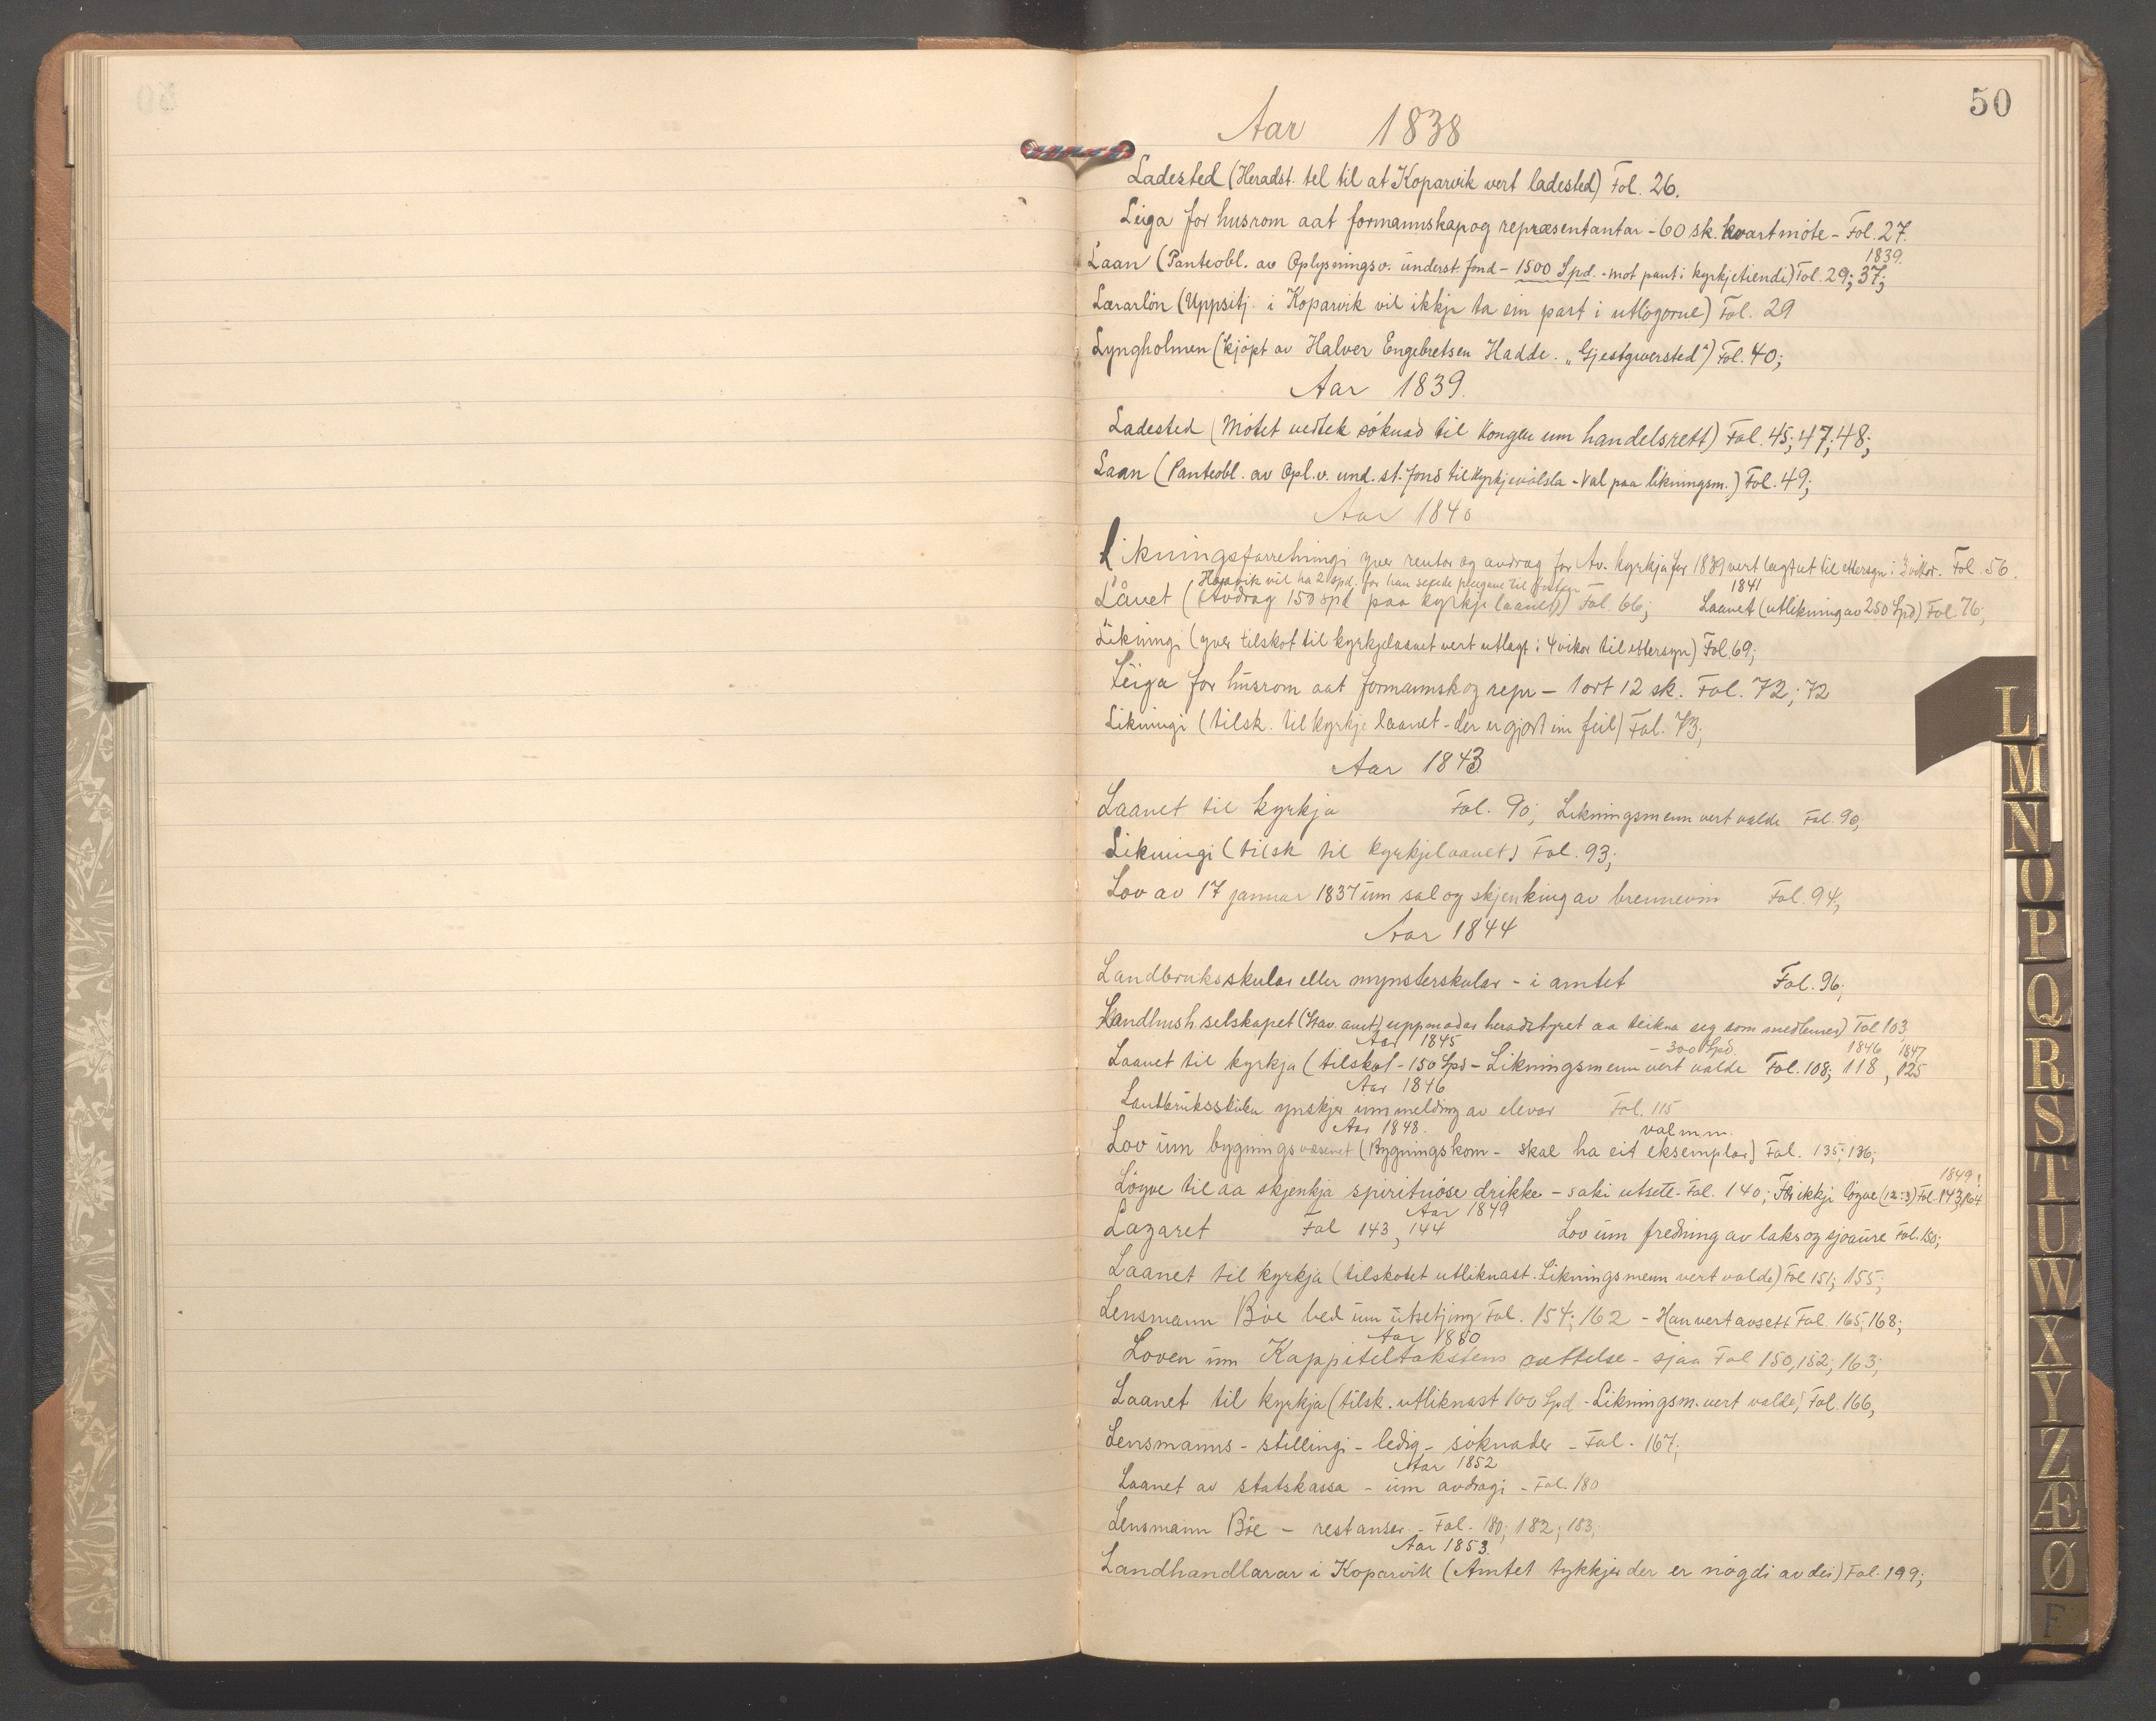 50
Aar 1838
Ladested (Heradst. tel til at Koparvik vert ladested) Fol. 26.
Leiga for husrom aat formannskap og repræsentantar - 60 sk. kvart møte - Fol. 27.
1839.
Laan (Panteobl. av Oplysningsv. underst. fond - 1500 Spd. - mot pant i kyrkjetiendi) Fol. 29; 37;
Lærarløn (Uppsitj. i Koparvik vil ikkje ta ein part i utlógorne) Fol. 29
Lyngholmen (kjøpt av Halver Engebretsen Hadde. „Gjestgiversted“) Fol. 40;
Aar 1839.
Ladested (Møtet vedtek søknad til Kongen um handelsrett) Fol. 45; 47; 48;
Laan (Panteobl. av Opl.v. und. st. fond til kyrkjevølsla - Val paa likningsm.) Fol. 49;
Aar 1840
Likningsforretningi yver rentor og avdrag for Av. kyrkja for 1839 vert lagt ut til ettersyn i 3 vikor. Fol. 56.
Havvik vil ha 2 spd. for han
1841
Lånet (Avdrag 150 spd paa kyrkjelaanet) Fol. 66; Laanet (utlikning av 250 Spd) Fol. 76;
Likningi (yver tilskot til kyrkjelaanet vert utlagt i 4 vikor til ettersyn) Fol. 69;
Leiga for husrom aat formannsk og repr - 1 ort 12 sk. Fol. 72; 72
Likningi (tilsk. til kyrkjelaanet - der er gjort ein feil) Fol. 73;
Aar 1843
Laanet til kyrkja Fol. 90; Likningsmenn vert valde Fol. 90;
Likningi (tilsk til kyrkjelaanet) Fol. 93;
Lov av 17 januar 1837 um sal og skjenking av brennevin Fol. 94;
Aar 1844
Landbruksskular eller mynsterskular - i amtet Fol. 96;
Landhush. selskapet (Stav. amt) uppmodar heradstyret aa teikna seg som medlemer) Fol 103
Aar 1845
- 300 Spd. 1846 1847
Laanet til kyrkja (tilskot - 150 Spd - Likningsmenn vert valde Fol. 108; 118, 125
Aar 1846
Lantbruksskulen ynskjer innmelding av elevar Fol. 115
Aar 1848. val m.m.
Lov um bygningsvæsenet (Bygningskom - skal ha eit eksemplar) Fol. 135; 136;
1849!
Løyve til aa skjenkja spirituøse drikke - saki utsett - Fol. 140; Fær ikkje løyve (12:3) Fol. 143, 164
Aar 1849
Lazaret Fol 143, 144 Lov um fredning av laks og sjøaure Fol. 150;
Laanet til kyrkja (tilskotet utliknast. Likningsmenn vert valde) Fol 151; 155;
Lensmann Bøe bed um utsetjing Fol. 154; 162 - Han vert avsett Fol. 165; 168;
Aar 1850
Loven um Kappiteltakstens sættelse - sjaa Fol 150, 152; 163;
Laanet til kyrkja (tilsk. utliknast 100 Spd - Likningsm. vert valde) Fol. 166,
Lensmanns - stillingi - ledig - søknader - Fol. 167;
Aar 1852
Laanet av statskassa - um avdragi - Fol. 180
Lensmann Bøe - restanser - Fol. 180; 182; 183;
Aar 1853.
Landhandlarar i Koparvik (Amtet tykkjer der er nøgdi av dei) Fol. 199;
L
M
N
O
P
Q
R
S
T
U
W
X
Y
Z
Æ
Ø
F